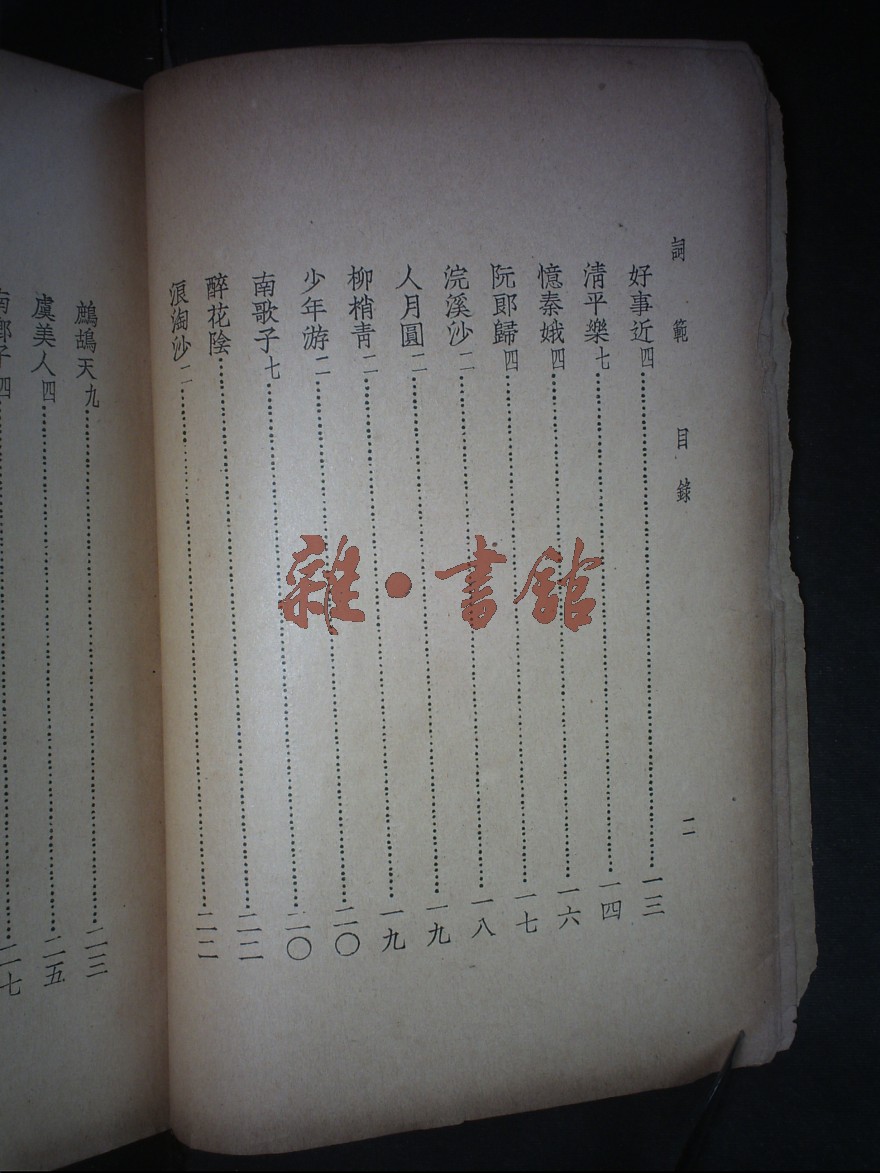 詞範 目錄 二
好事近四……一三
清平樂七……一四
憶秦娥四……一六
阮郎歸四……一七
浣溪沙二……一八
人月圓二……一九
柳梢青二……一九
少年游二……二〇
南歌子七……二〇
醉花陰……二二
浪淘沙二……二二
鷓鴣天九……二三
虞美人四……二五
南鄉子四……二七
雜·書館